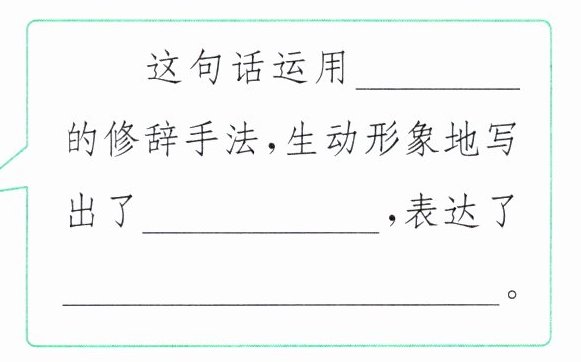 这句话运用________
的修辞手法,生动形象地写
出了____________,表达了
______________________。